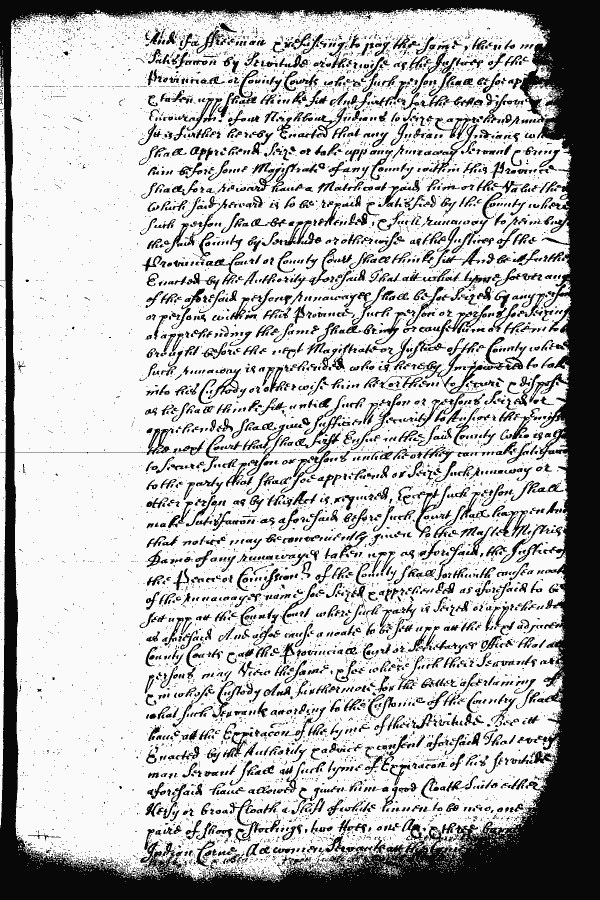 And if a ffreeman refuseing to pay the same, then to ma
Satisfaccon by Servitude or otherwise as the Justices of the
Provinciall or County Courts where Such person Shall be soe ap
& taken upp Shall thinke fitt And further for the better discov
Encouragemt. of our Neighbour Indians to Seize & apprehend runaw
It is further hereby Enacted that any Indian or Indians wh
Shall Apprehend, Seize or take upp any runaway Servant & bring
him before Some Magistrate of any County within this Province
Shall for a reward have a Matchcoat paid him or the Value ther
Which Said reward is to be repaid & Satisfied by the County where
Such person Shall be apprehended, & Such runaway to reimburs
the Said County by Servitude or otherwise as the Justices of the
Provinciall Court or County Court Shall thinke fitt And be itt further
Enacted by the Authority aforesaid That att what tyme Soever any
of the aforesaid persons runawayes Shall be Soe Seized by any person
or persons within this Province Such person or persons Soe Seizing
or apprehending the Same Shall bring or cause him or them to be
brought before the next Magistrate or Justice of the County where
Such runaway is apprehended who is hereby Impowered to take
into his Custody or otherwise him her or them to Secure & dispose
as he Shall thinke fitt untill Such person or persons Seized or
apprehended Shall give Sufficient Security to answer the premiss
the next Court that Shall first Ensue in the Said County
to Secure Such person or persons untill he or they can make Satisfaccon
to the party that Shall Soe apprehend or Seize Such runaway or
other person as by this Act is required, Except Such person Shall
make Satisfaccon as aforesaid before Such Court Shall happen And
that notice may be conveniently given to the Master Mistriss
Dame of any runawayes taken upp as aforesaid, the Justice of
the Peace or Comission.rs of the County Shall forthwith cause a noate
of the runawayes name Soe Seized & apprehended as aforesaid to be
Sett upp att the County Court where Such party is Seized or apprehended
as aforesaid And alsoe cause a noate to be Sett upp att the next adjacen
County Courts & att the Provinciall Court or Secretaryes Office that all
persons may View the Same, & See where Such their Servants are
& in whose Custody And furthermore for the better ascertaining of
what Such Servants according to the Custome of the Country Shall
have att the Expiracon of the tyme of their Servitude. Bee itt
Enacted by the Authority & advice & consent aforesaid That every
man Servant Shall att Such tyme of Expiracon of his Servitude
aforesaid have allowed & given him a good Cloath Suite either
Kersy or broad Cloath a Shift of white linnen to be new, one
paire of Shoos & Stockings, two Hoes, one Ax, & three
Indian Corne, All women Servants att the